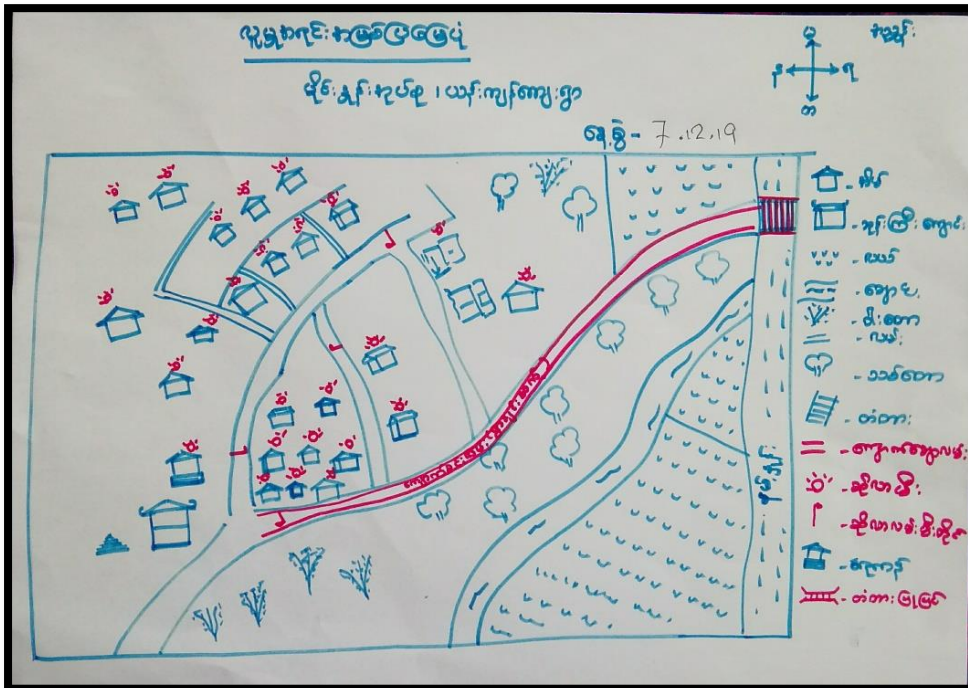 လူမှုစာရင်းအမြစ်ပြမြေပုံ
မိုင်းနွန်းအုပ်စု ၊ ယန်းကျန်ကျေးရွာ
နေ့စွဲ - 7.12.19
အညွှန်း
မ
န
ရ
တ
- အိမ်
- ဘုန်းကြီးကျောင်း
- လယ်
- ချောင်း
- ဝါးတော
- လမ်း
- သစ်တော
- တံတား
- ကျောက်ချောလမ်း
- ဆိုလာမီး
- ဆိုလာလမ်းမီးတိုင်
- ရေကန်
- တံတားပြုပြင်